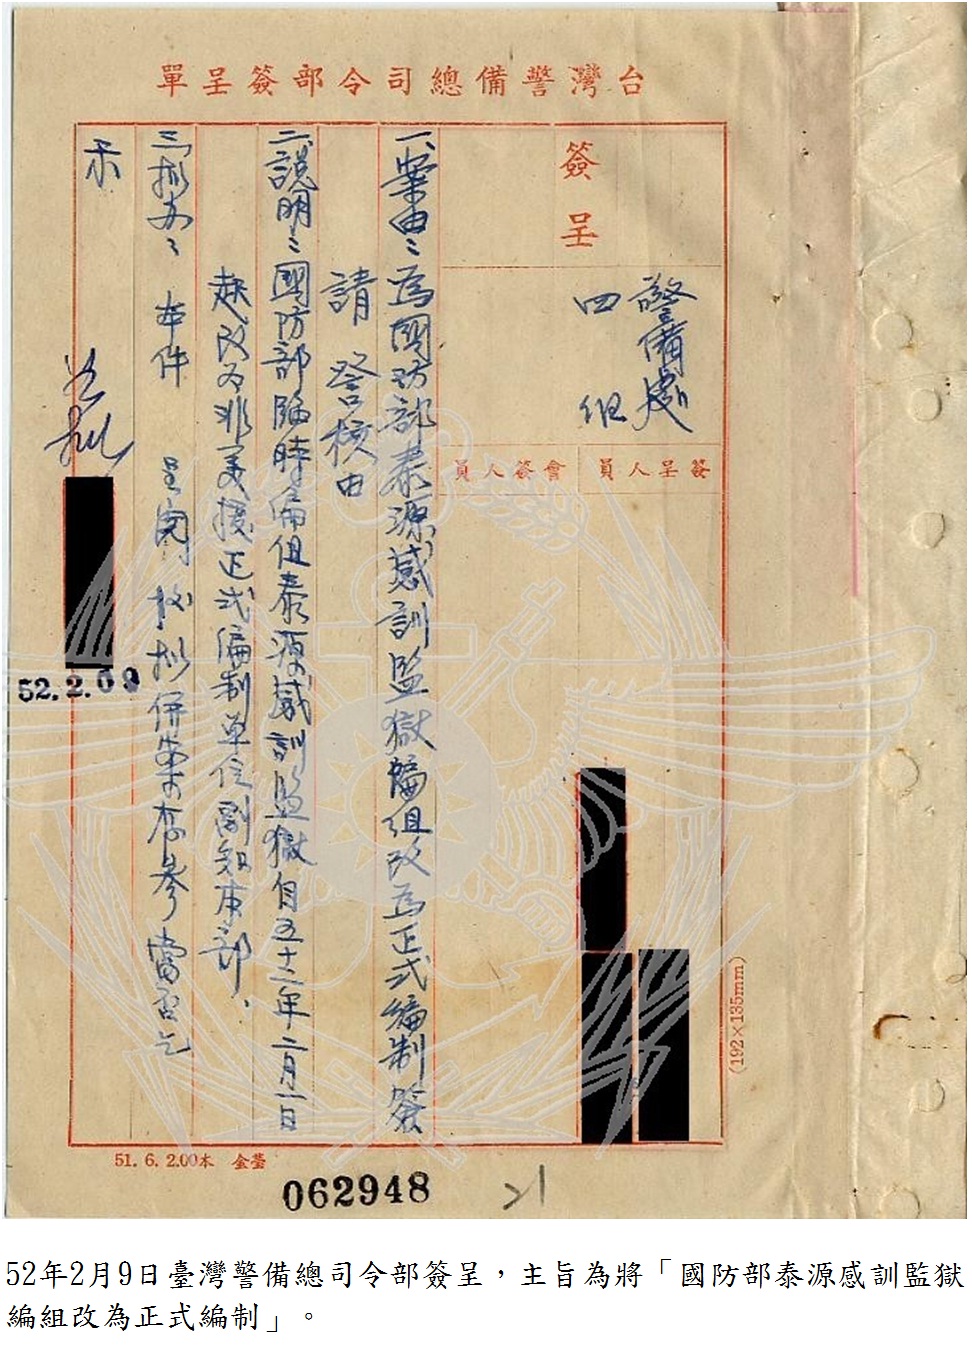 台灣警備總司令部簽呈單
簽呈
警備處
四組
簽呈人員
會簽人員
一、案由：為國防部泰源感訓監獄編組改為正式編制簽
請 詧核由
二、說明：國防部臨時編組泰源感訓監獄自五十二年二月一日
起改為非美援正式編制單位副知本部．
三、擬办： 本件 呈閱後擬併案存參 當否乞
示
52.2.09
(192×135mm)
51. 6. 2.00本 金莹
062948
21
52年2月9日臺灣警備總司令部簽呈，主旨為將「國防部泰源感訓監獄
編組改為正式編制」。